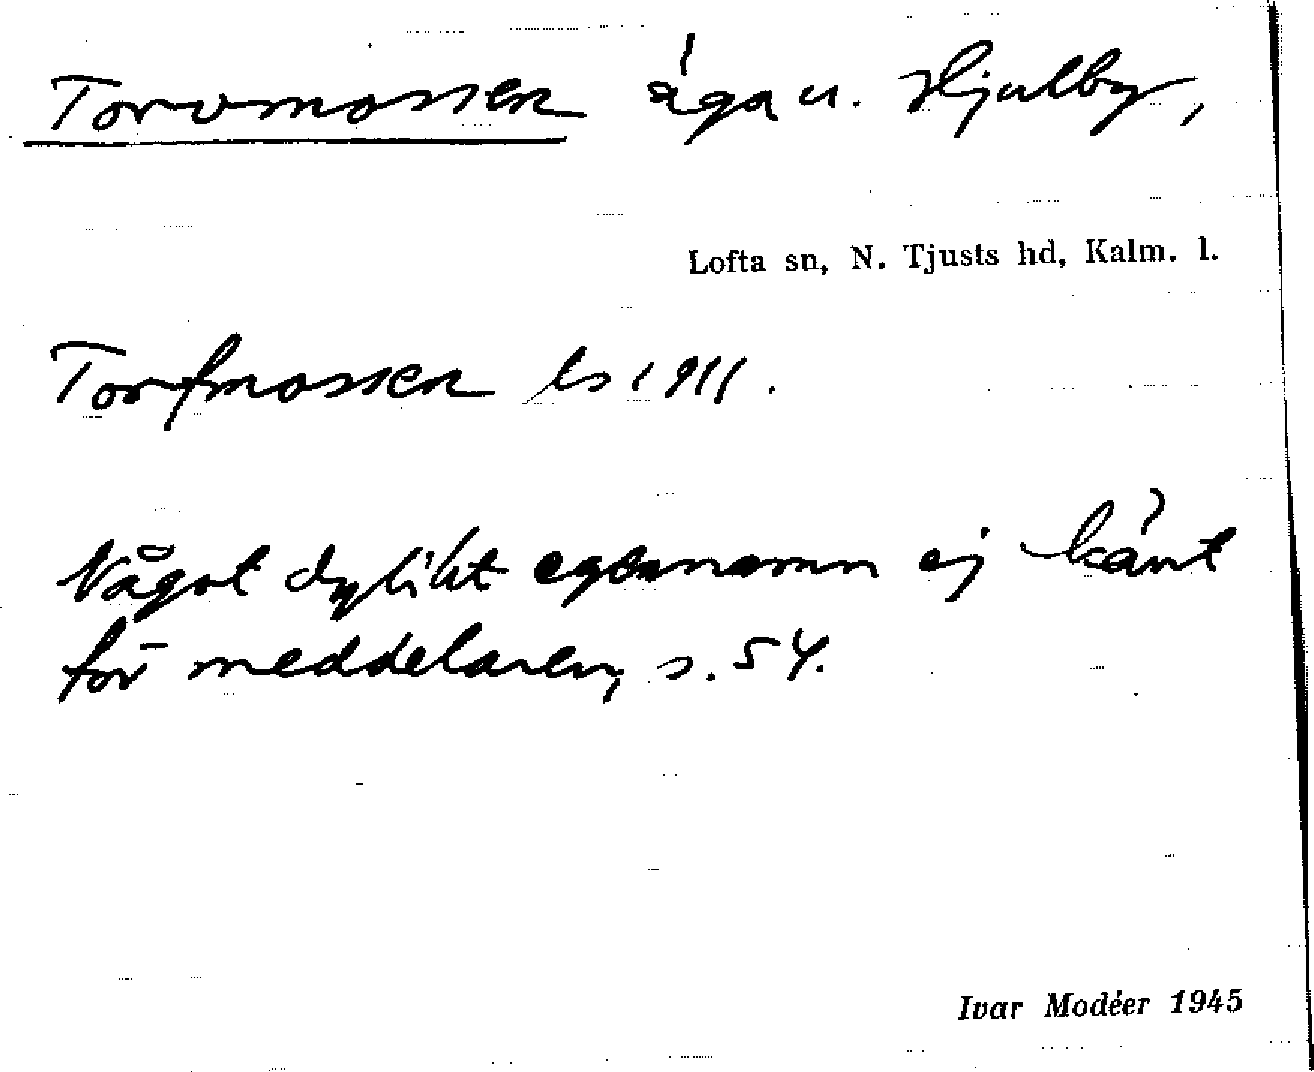 Torvmossen äga u. Hjulby,
Lofta sn, N. Tjusts hd, Kalm. l.
Torfmossen ls 1911.
Något dylikt egennamn ej känt
för meddelaren, s. 54.
Ivar Modéer 1945